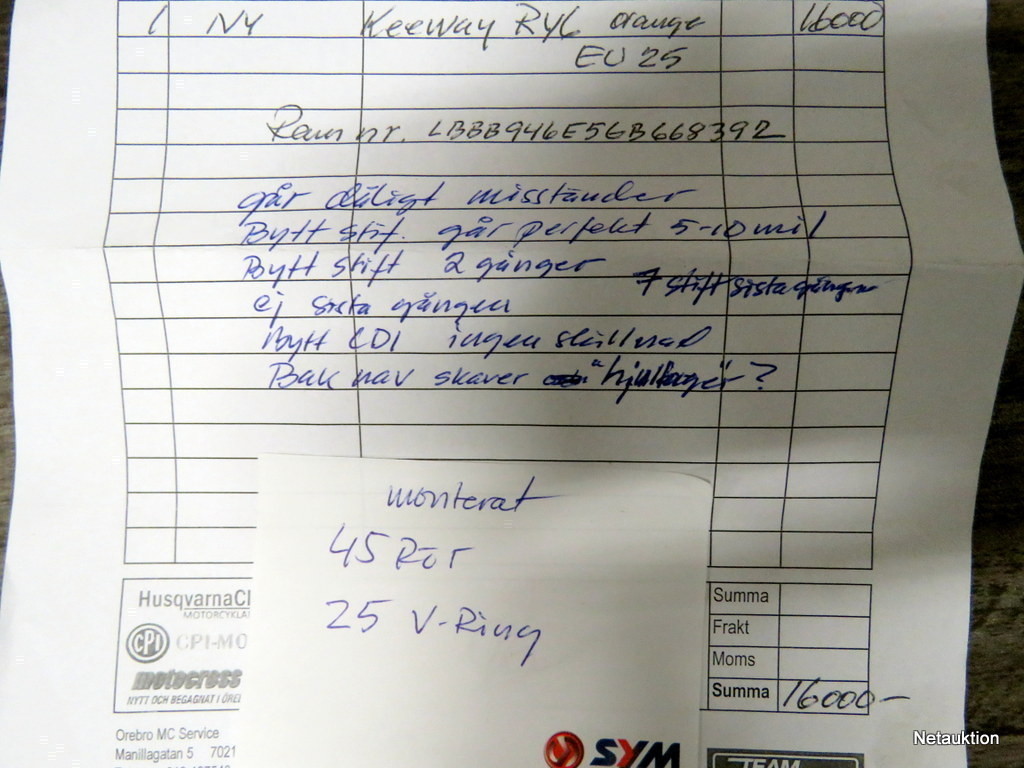 1 NY Keeway RY6 orange 16000
EU 25
Ram nr. LBBB946E56B668392
går dåligt misständer
Bytt stift. går perfekt 5-10 mil
Bytt stift 2 gånger
7 stift sista gången
ej sista gången
Bytt CDI ingen skillnad
Bak nav skaver "hjullager"?
monterat
45 Rör
25 V-Ring
HusqvarnaCl
MOTORCYKLA
CPI CPI-MO
motocross
NYTT OCH BEGAGNAT I ÖREI
Summa
Frakt
Moms
Summa 16000-
Orebro MC Service
Manillagatan 5 7021
SYM
TEAM
Netauktion